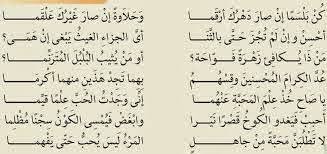 كُنْ بَلْسَمًا إِنْ صارَ دَهْرُكَ أَرْقَما وَحَلاوَةً إِنْ صارَ غَيْرُكَ عَلْقَما
أَحْسِنْ وَإِنْ لَمْ تُجْزَ حَتَّى بِالثَّنا أَيُّ الجَزاءِ الغَيْثُ يَبْغي إِنْ هَمى؟
مَنْ ذا يُكافِئُ زَهْرَةً فَوّاحَةً؟ أَوْ مَنْ يُثيبُ البُلْبُلَ المُتَرَنِّما؟
عُدَّ الكِرامَ المُحْسِنينَ وَقِسْهُمُ بِهِما تَجِدْ هَذَيْنِ مِنْهُم أَكْرَما
يا صاحِ خُذْ عِلْمَ المَحَبَّةِ عَنْهُما إِنّي وَجَدْتُ الحُبَّ عِلْمًا قَيِّما
أَحْبِبْ فَيَغْدُو الكوخُ قَصْرًا نَيِّرا وَابْغُضْ فَيُمْسي الكَوْنُ سِجْنًا مُظْلِما
لا تَطْلُبَنَّ مَحَبَّةً مِنْ جاهِلٍ المَرْءُ لَيْسَ يُحَبُّ حَتَّى يُفْهَما